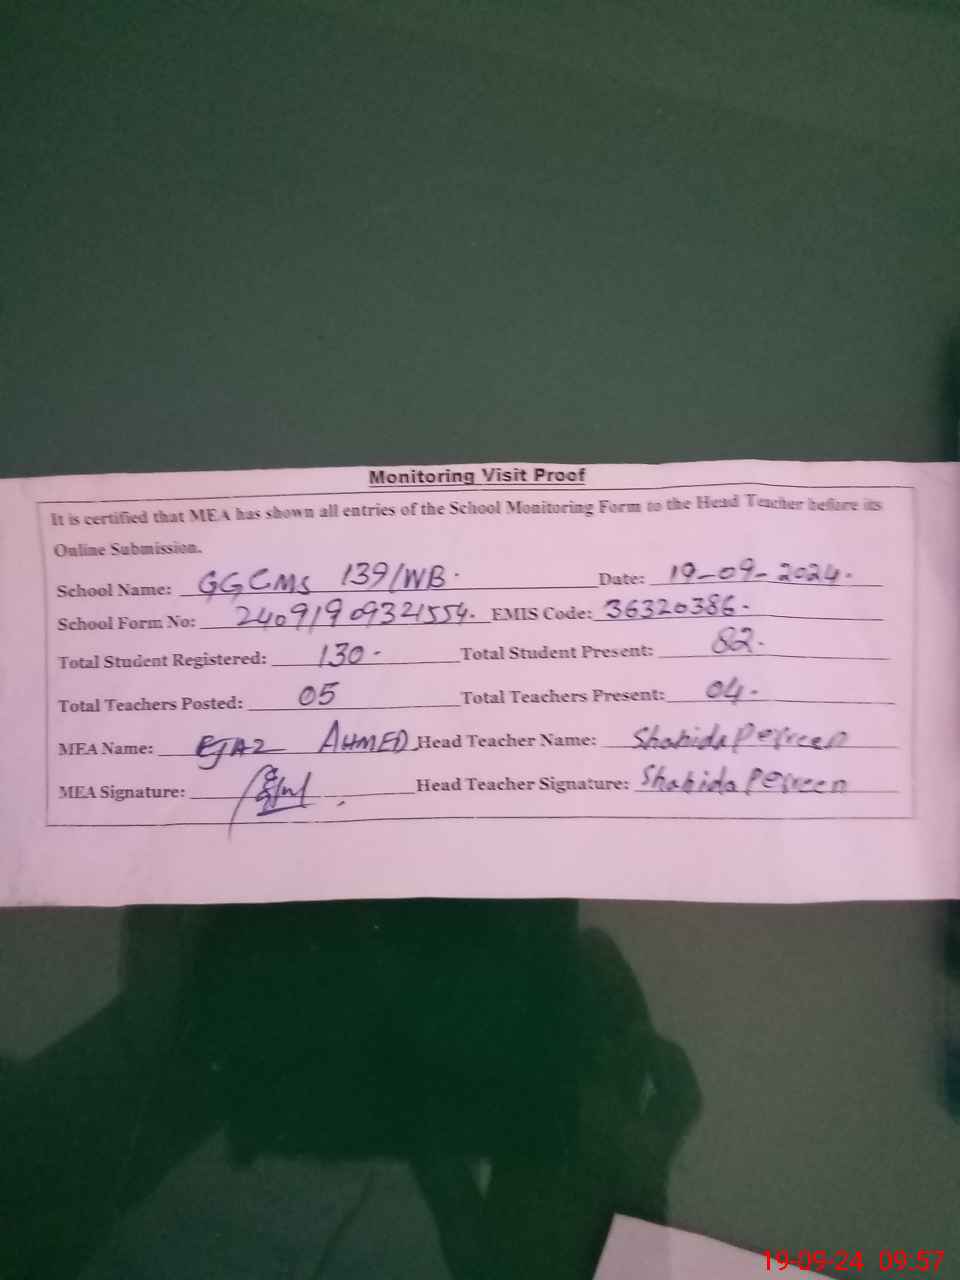 Monitoring Visit Proof
It is certified that MEA has shown all entries of the School Monitoring Form to the Head Teacher before its
Online Submission.
School Name: GGCMS 139/WB. Date: 19-09-2024.
School Form No: 24091909321554. EMIS Code: 36320386.
Total Student Registered: 130. Total Student Present: 82.
Total Teachers Posted: 05 Total Teachers Present: 04.
MEA Name: EJAZ AHMED Head Teacher Name: Shahida Perveen
MEA Signature: Head Teacher Signature: Shahida Perveen
19-09-24 09:57